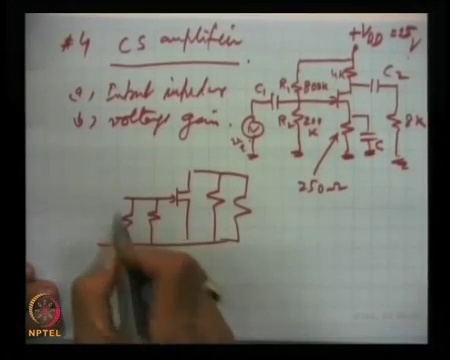 #4 CS amplifier.
a, Input impedance
b, voltage gain.
+VDD = 25V
4K
C2
R1 800K
C1
R2 200K
8K
C
250Ω
NPTEL